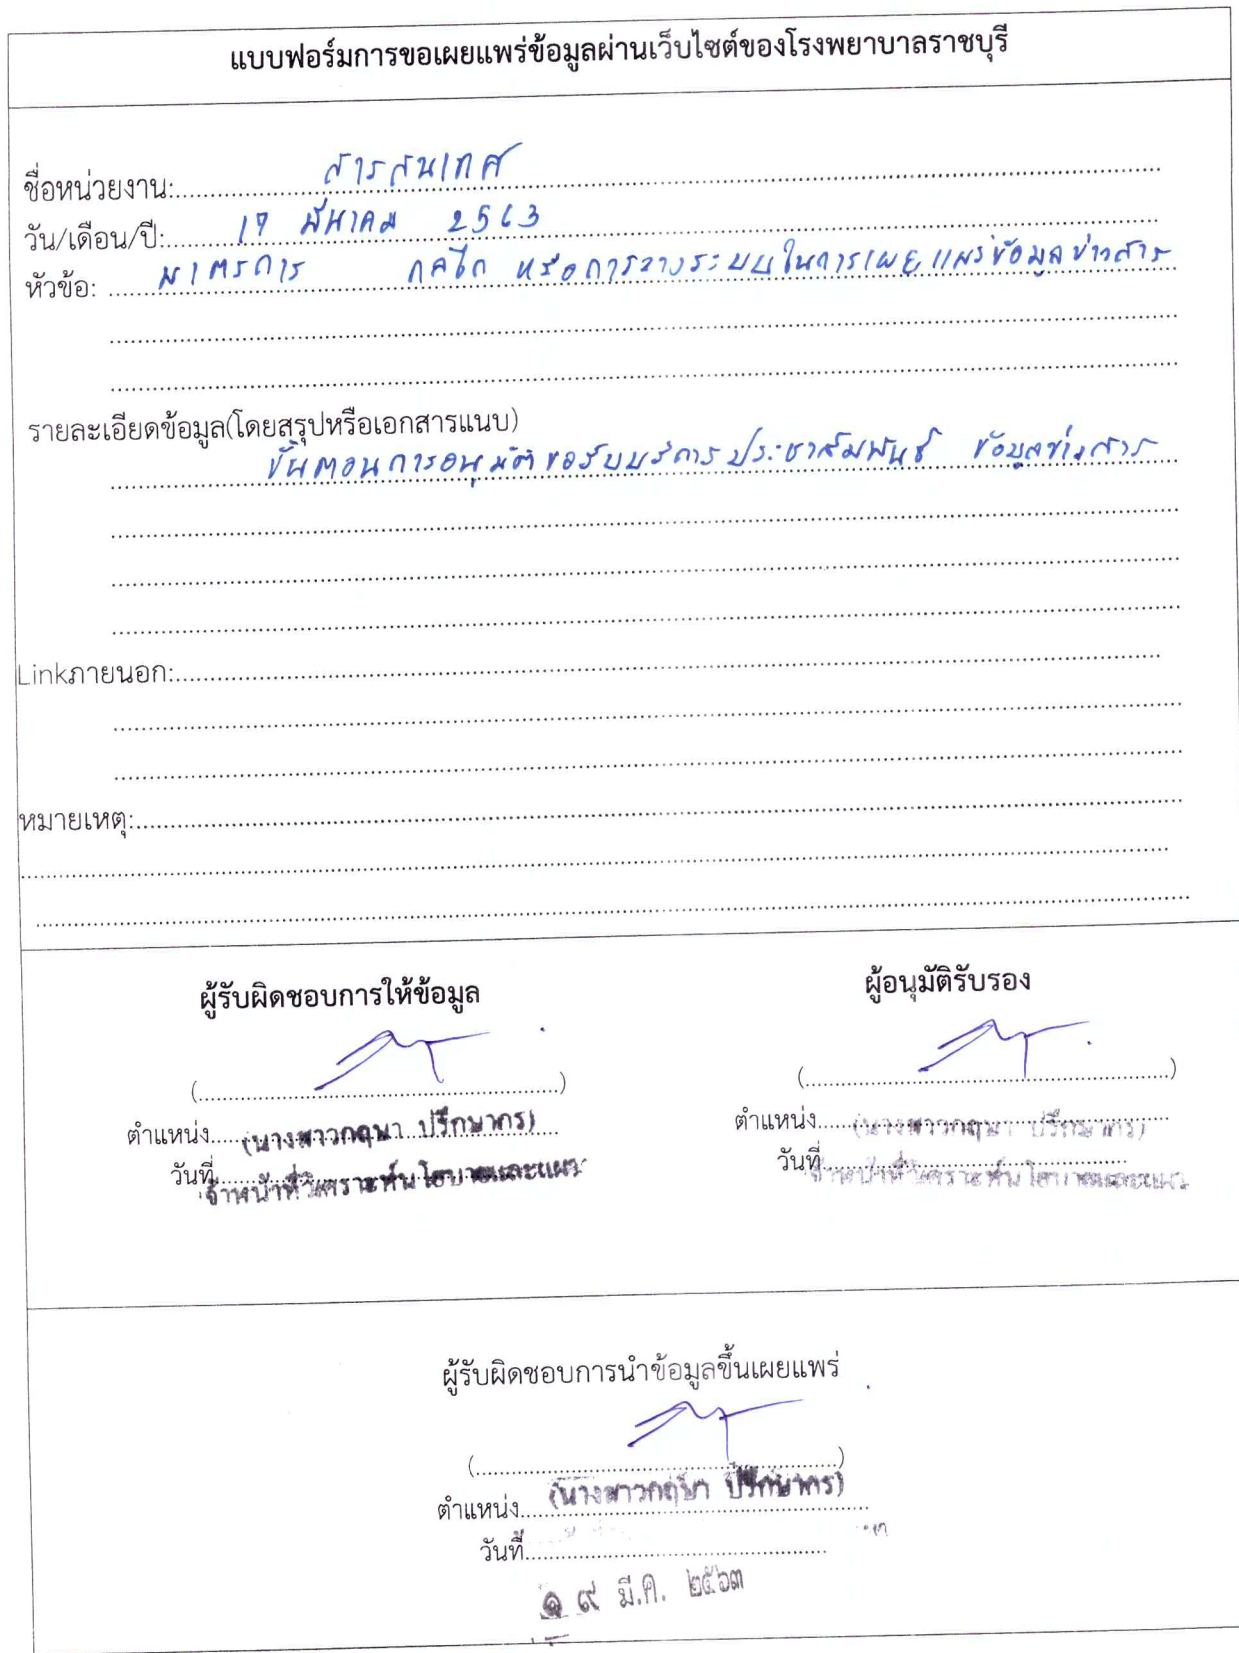 แบบฟอร์มการขอเผยแพร่ข้อมูลผ่านเว็บไซต์ของโรงพยาบาลราชบุรี
ชื่อหน่วยงาน: สารสนเทศ
วัน/เดือน/ปี: 17 มีนาคม 2563
หัวข้อ: มาตรการ กลไก หรือการวางระบบในการเผยแพร่ข้อมูลข่าวสาร
รายละเอียดข้อมูล(โดยสรุปหรือเอกสารแนบ)
ขั้นตอนการอนุมัติขอรับบริการประชาสัมพันธ์ ข้อมูลข่าวสาร
Linkภายนอก:
หมายเหตุ:
ผู้รับผิดชอบการให้ข้อมูล ผู้อนุมัติรับรอง
(....) (....)
ตำแหน่ง (นางสาวกฤษา ปรึกษากร) ตำแหน่ง (นางสาวกฤษา ปรึกษากร)
วันที่ วันที่
จ้าหน้าที่วิเคราะห์นโยบายและแผน จ้าหน้าที่วิเคราะห์นโยบายและแผน
ผู้รับผิดชอบการนำข้อมูลขึ้นเผยแพร่
(....)
ตำแหน่ง (นางสาวกฤษา ปรึกษากร)
วันที่
๑๙ มี.ค. ๒๕๖๓